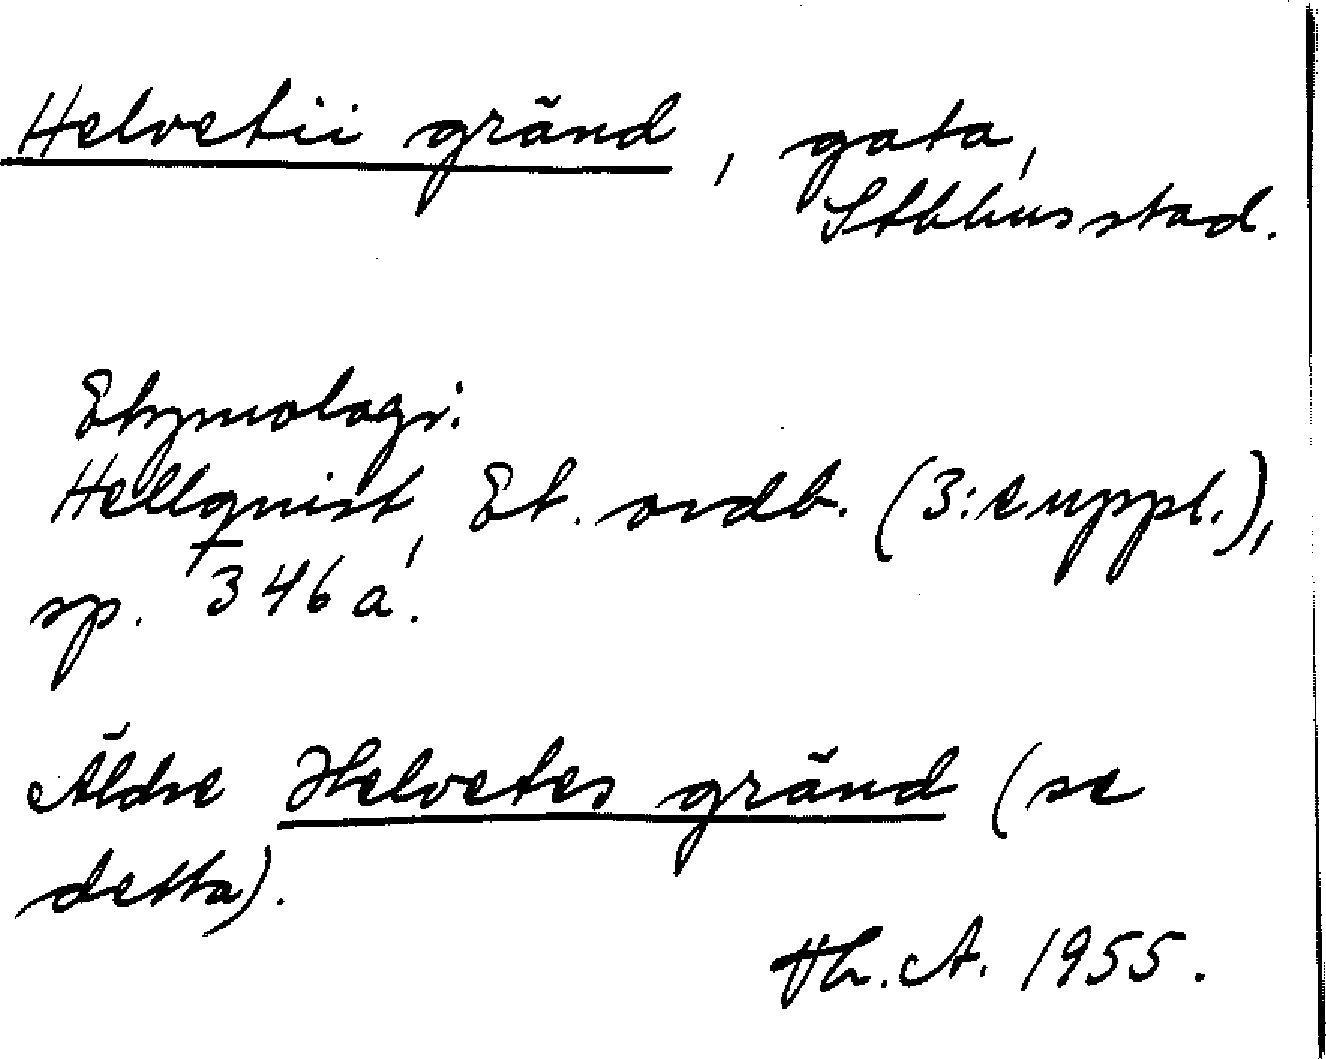 Helvetii gränd, gata,
Sthlms stad.
Etymologi.
Hellquist, Et. ordb. (3:e uppl.),
sp. 346 a.
Äldre Helvetes gränd (se
detta).
Th. A. 1955.